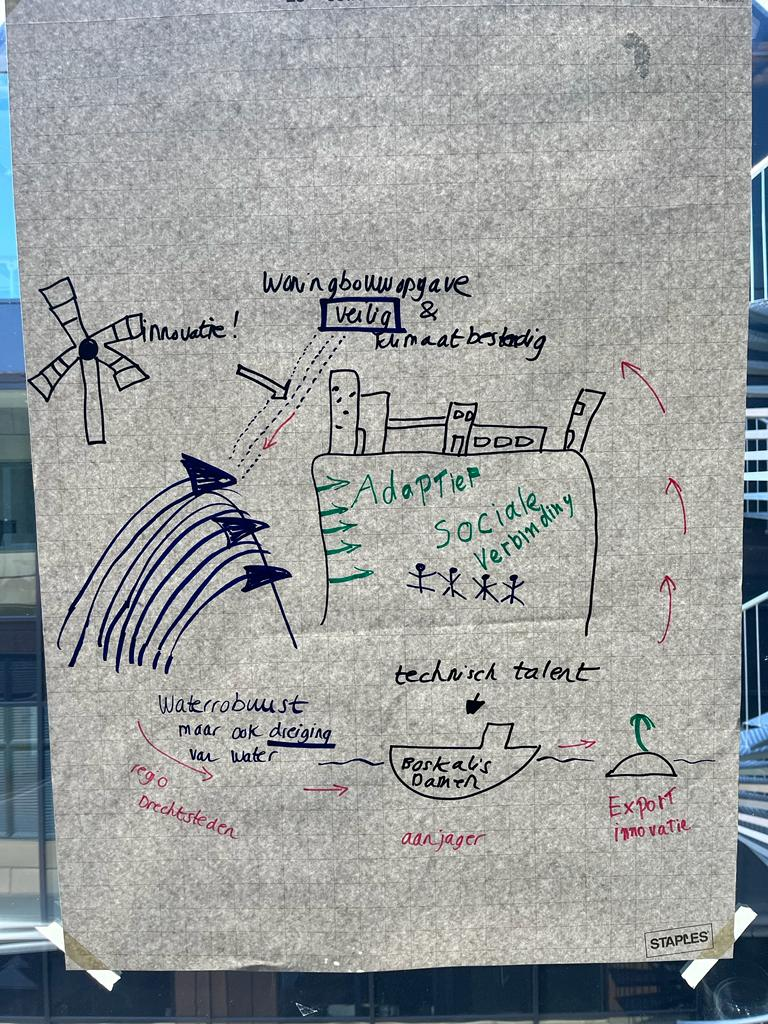 Woningbouwopgave
Veilig &
klimaatbestedig
innovatie!
Adaptief
Sociale
Verbinding
technisch talent
Waterrobuust
maar ook dreiging
van water
Boskalis
Damen
regio
Drechtsteden
aanjager
Export
innovatie
STAPLES